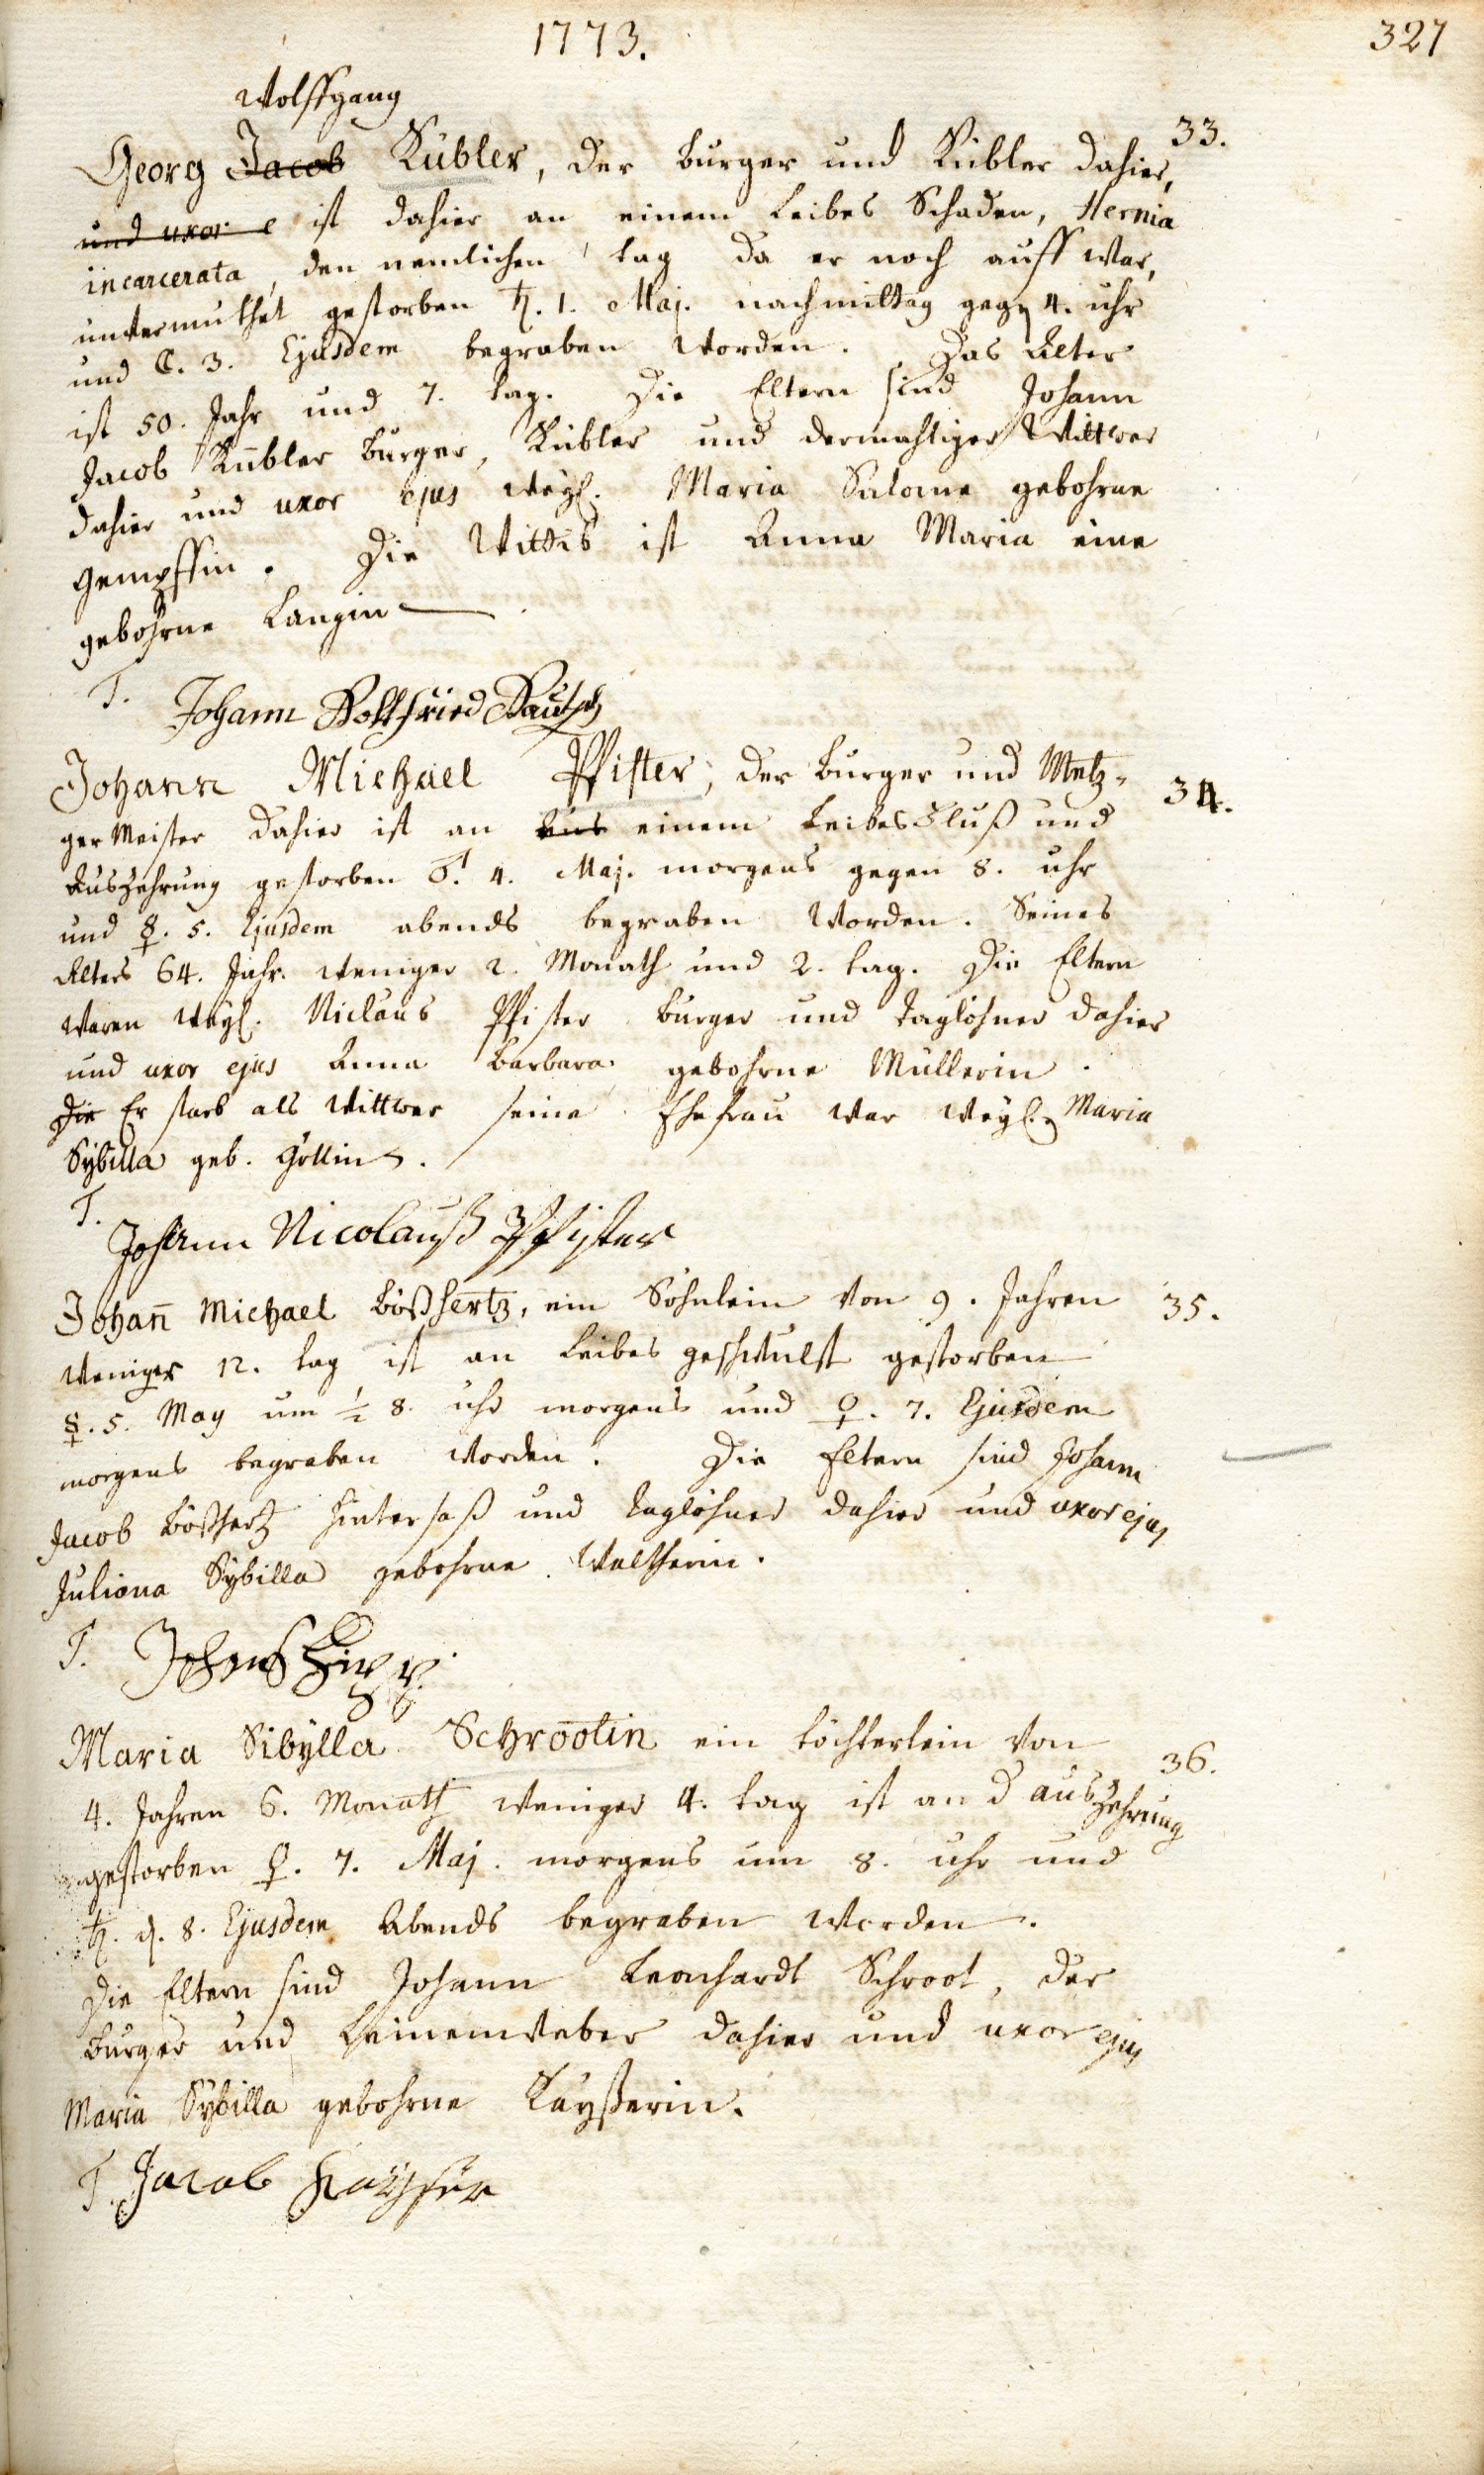 1773.
327
Wolffgang
33.
Georg Jacob Kübler, der burger und Kübler dahier,
und uxor e ist dahier an einem Leibes Schaden, Hernia
incarcerata, den nemlichen tag da er noch auff war,
unvermuthet gestorben ♄. 1. Maj. nachmittag gegen 4. uhr
und ☾. 3. Ejusdem begraben worden. Das Alter
ist 50. Jahr und 7. tag. Die Eltern sind Johann
Jacob Kübler burger, Kübler und dermahliger Wittwer
dahier und uxor ejus weyl. Maria Salome gebohrne
Gempffin. Die Wittib ist Anna Maria eine
gebohrne Langin
T. Johann Gottfried
34.
Johann Michael Pfister, der burger und Metz-
ger Meister dahier ist an einem Leibes Fluß und
Auszehrung gestorben ♂. 4. Maj. morgens gegen 8. uhr
und ☿. 5. Ejusdem abends begraben worden. Seines
Alters 64. Jahr. weniger 2. Monath und 2. tag. Die Eltern
waren weyl. Niclaus Pfister burger und Taglöhner dahier
und uxor ejus Anna Barbara gebohrne Müllerin.
Die Er starb als Wittwer seine Ehefrau war weyl. Maria
Sybilla geb. Göllin.
T. Johann Nicolauß Pfister
35.
Johan̄ Michael Bößhertz, ein Söhnlein von 9. Jahren
weniger 12. tag ist an Leibes geschwulst gestorben
☿. 5. May um ½ 8. uhr morgens und ♀. 7. Ejusdem
morgens begraben worden. Die Eltern sind Johann
Jacob Bößhertz Hintersaß und Taglöhner dahier und uxor ejus
Juliana Sybilla gebohrne Waltherin.
T.
36.
Maria Sibÿlla Schrootin ein töchterlein von
4. Jahren 6. Monath weniger 4. tag ist an d auszehrung
gestorben ♀. 7. Maj. morgens um 8. uhr und
♄. d. 8. Ejusdem Abends begraben worden.
Die Eltern sind Johann Leonhardt Schroot, der
burger und Leinenweber dahier und uxor ejus
Maria Sÿbilla gebohrne Kayßerin.
T. Jacob Kayser